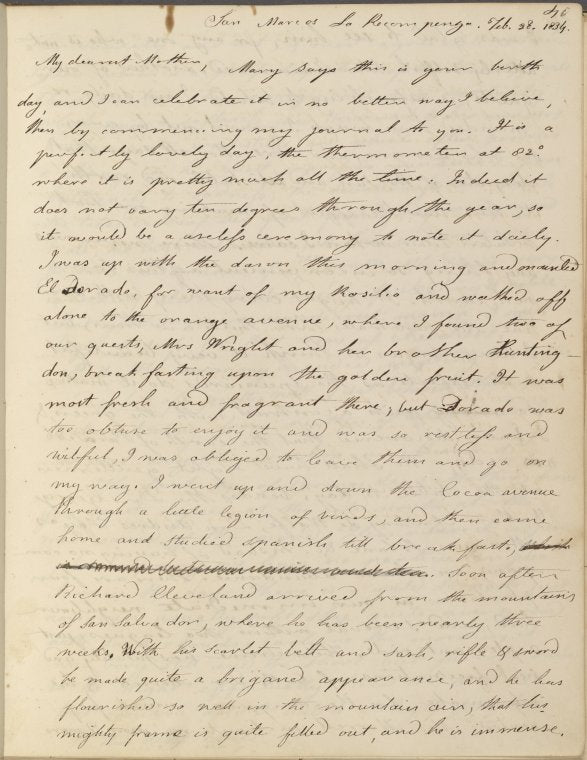 46
San Marcos La Recompensa. Feb. 28. 1834.
My dearest Mother, Mary says this is your birth
day, and I can celebrate it in no better way I believe,
than by commencing my journal to you. It is a
perfectly lovely day, the thermometer at 82°.
where it is pretty much all the time. Indeed it
does not vary ten degrees through the year, so
it would be a useless ceremony to note it daily.
I was up with the dawn this morning and mounted
El Dorado, for want of my Rosilio and walked off
alone to the orange avenue, where I found two of
our guests, Mrs Wright and her brother Hunting-
don, breakfasting upon the golden fruit. It was
most fresh and fragrant there; but Dorado was
too obtuse to enjoy it and was so restless and
wilful, I was obliged to leave them and go on
my way. I went up and down the Cocoa avenue
through a little legion of birds, and then came
home and studied Spanish till breakfast.
Soon after
Richard Cleveland arrived from the mountains
of San Salvador, where he has been nearly three
weeks. With his scarlet belt and sash, rifle & sword
he made quite a brigand appearance, and he has
flourished so well in the mountain air, that his
mighty frame is quite filled out, and he is immense.